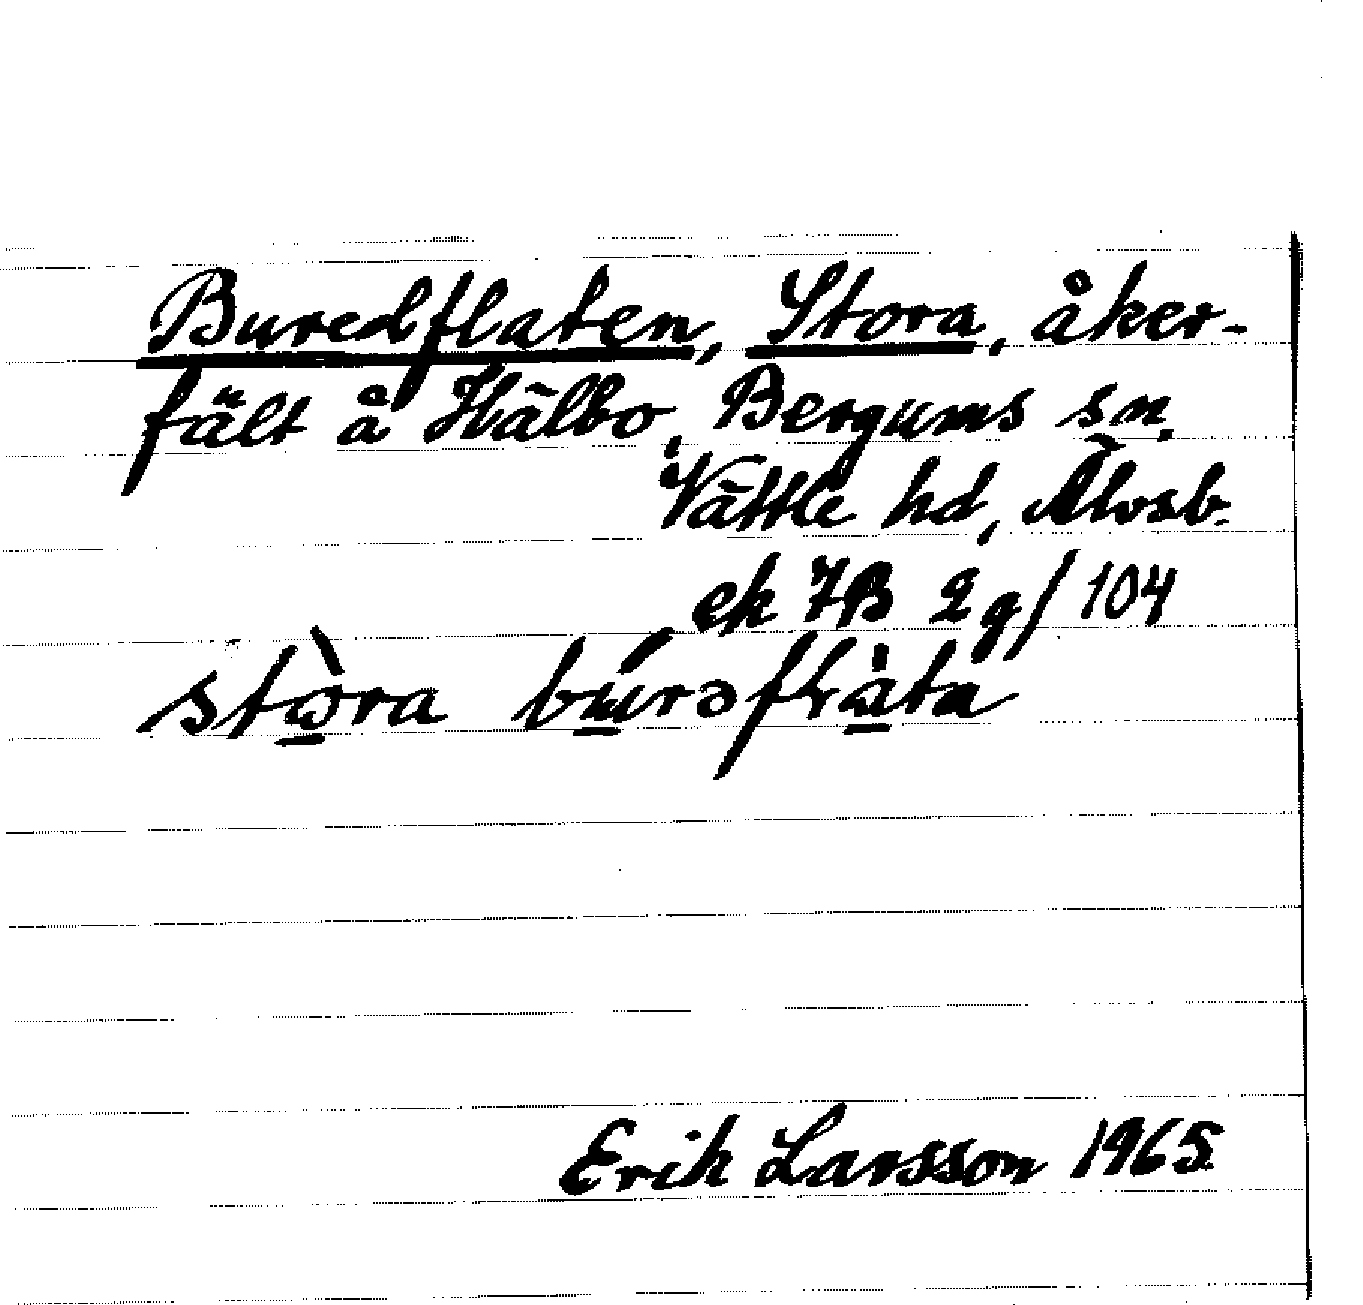 Buredflaten, Stora, åker-
fält å Hälbo, Bergums sn.
Vättle hd, Älvsb.
ek 7B 2g/104
stòra búrəflàta
Erik Larsson 1965